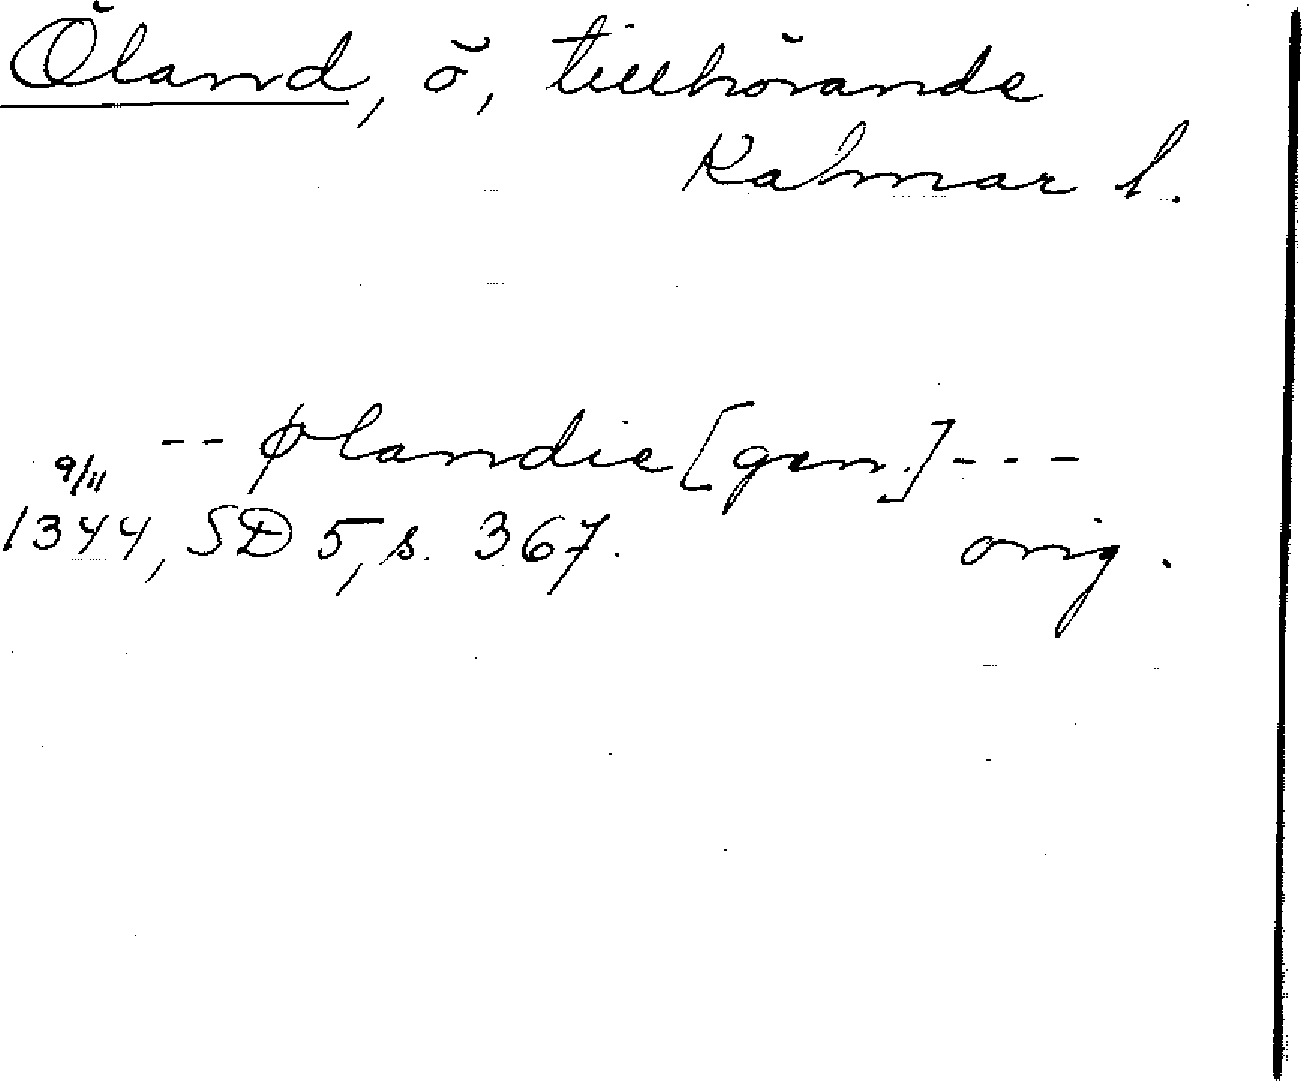 Öland, ö, tillhörande
Kalmar l.
-- ølandie [gen.] ---
9/11
1344, SD 5, s. 367. orig.